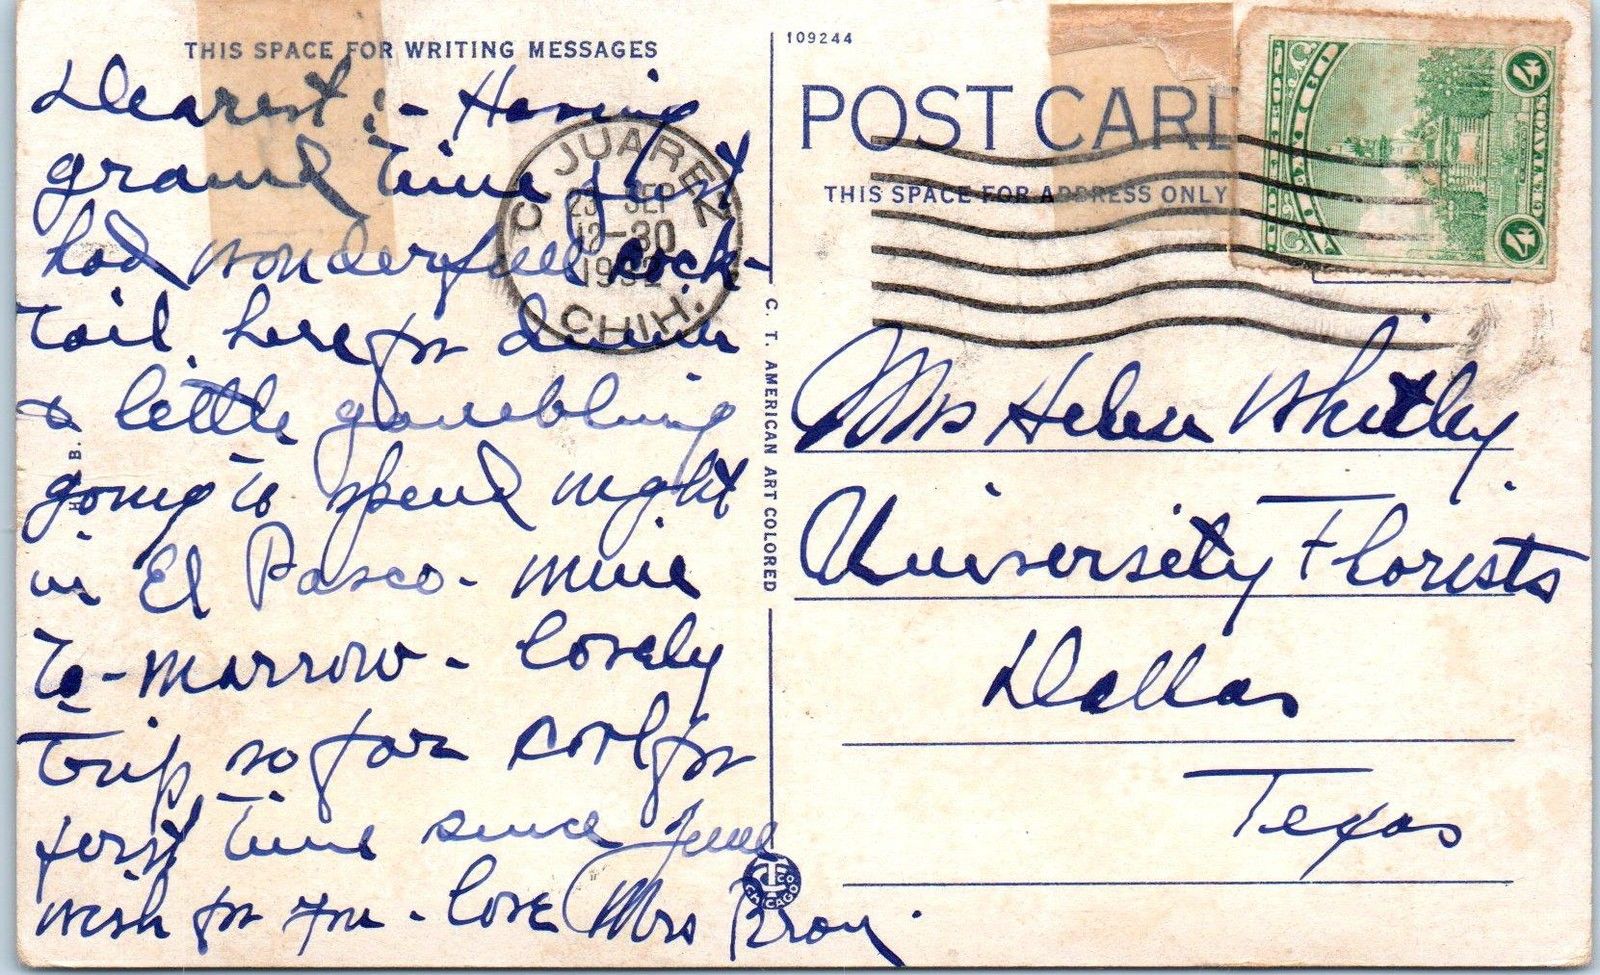 THIS SPACE FOR WRITING MESSAGES
Dearest :- Having
grand time just
had wonderfull cock-
tail. here for dinner
& little gambling
going to spend night
in El Pasco - mine
to-marrow - lovely
trip so far cool for
first time since June
wish for you - love Mrs
H. B.
C. JUAREZ
SEP
12-30
1932
CHIH.
C. T. AMERICAN ART COLORED
CHICAGO
109244
POST CARD
THIS SPACE FOR ADDRESS ONLY
4
4
Mrs Helen Whitley.
University Florists
Dallas
Texas